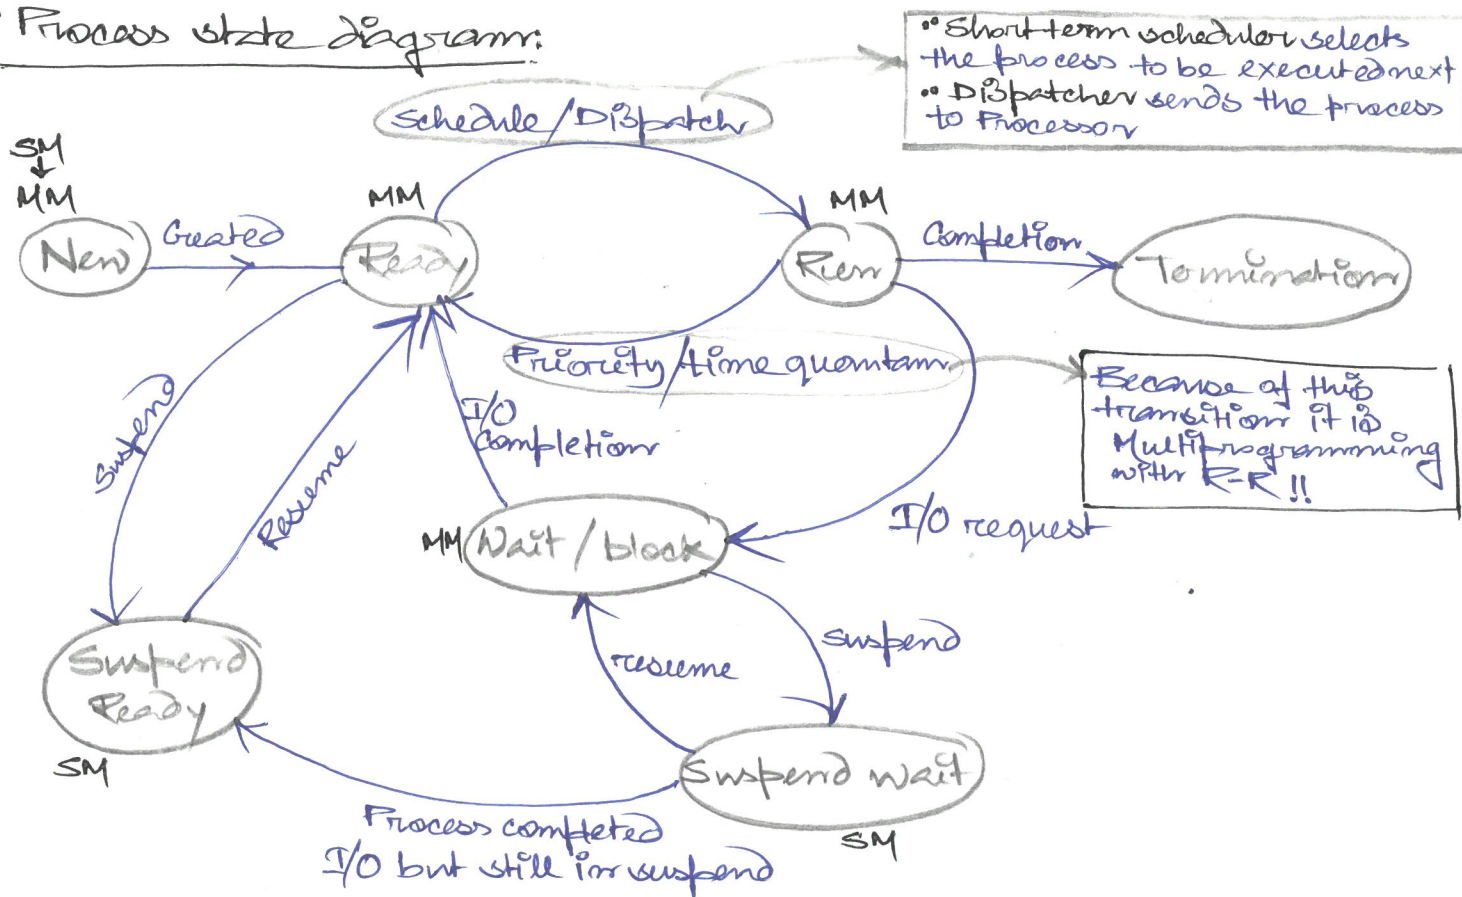 Process state diagram:
•• Short term scheduler selects
the process to be executed next
•• Dispatcher sends the process
to Processor
Schedule/Dispatch
SM
↓
MM
MM
MM
New
Created
Ready
Run
Completion
Termination
Priority/time quantam
Because of this
transition it is
Multiprogramming
with R-R !!
Suspend
Resume
I/O
completion
I/O request
MM
Wait / block
suspend
resume
Suspend
Ready
SM
Suspend wait
SM
Process completed
I/O but still in suspend